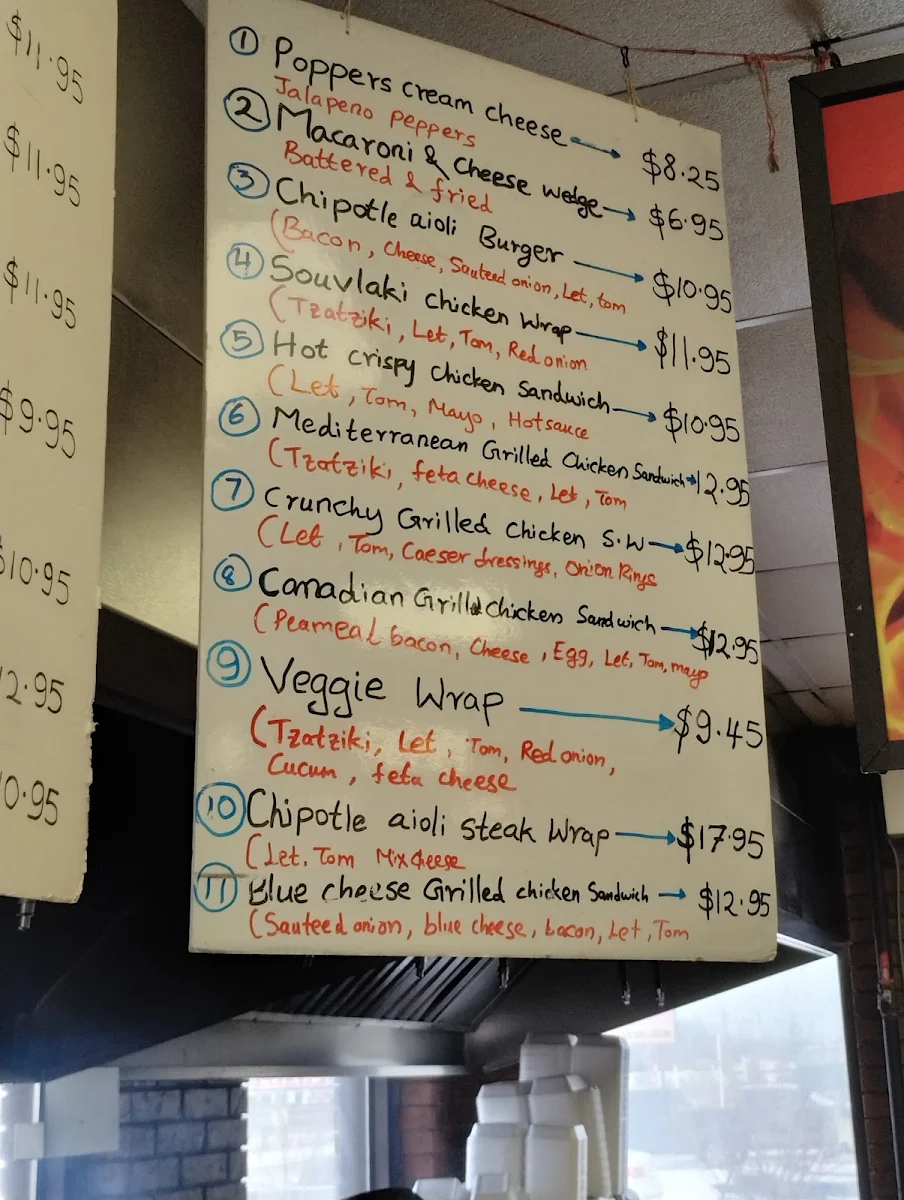 $11.95
$11.95
$11.95
$9.95
$10.95
2.95
0.95
1 Poppers cream cheese → $8.25
Jalapeno peppers
2 Macaroni & Cheese wedge → $6.95
Battered & fried
3 Chipotle aioli Burger → $10.95
(Bacon, Cheese, Sauteed onion, Let, tom
4 Souvlaki chicken Wrap → $11.95
(Tzatziki, Let, Tom, Red onion
5 Hot crispy chicken Sandwich → $10.95
(Let, Tom, Mayo, Hot sauce
6 Mediterranean Grilled Chicken Sandwich → 12.95
(Tzatziki, feta cheese, Let, Tom
7 Crunchy Grilled chicken S.W → $12.95
(Let, Tom, Caeser dressings, Onion Rings
8 Canadian Grilld chicken Sandwich → $12.95
(Peameal bacon, Cheese, Egg, Let, Tom, mayo
9 Veggie Wrap → $9.45
(Tzatziki, Let, Tom, Red onion,
Cucum, feta cheese
10 Chipotle aioli steak Wrap → $17.95
(Let. Tom Mix cheese
11 Blue cheese Grilled chicken Sandwich → $12.95
(Sauteed onion, blue cheese, bacon, Let, Tom